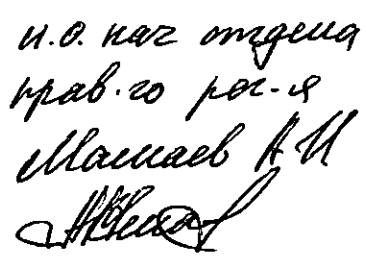 и.о. нач отдела
прав-го рег-я
Машаев А И